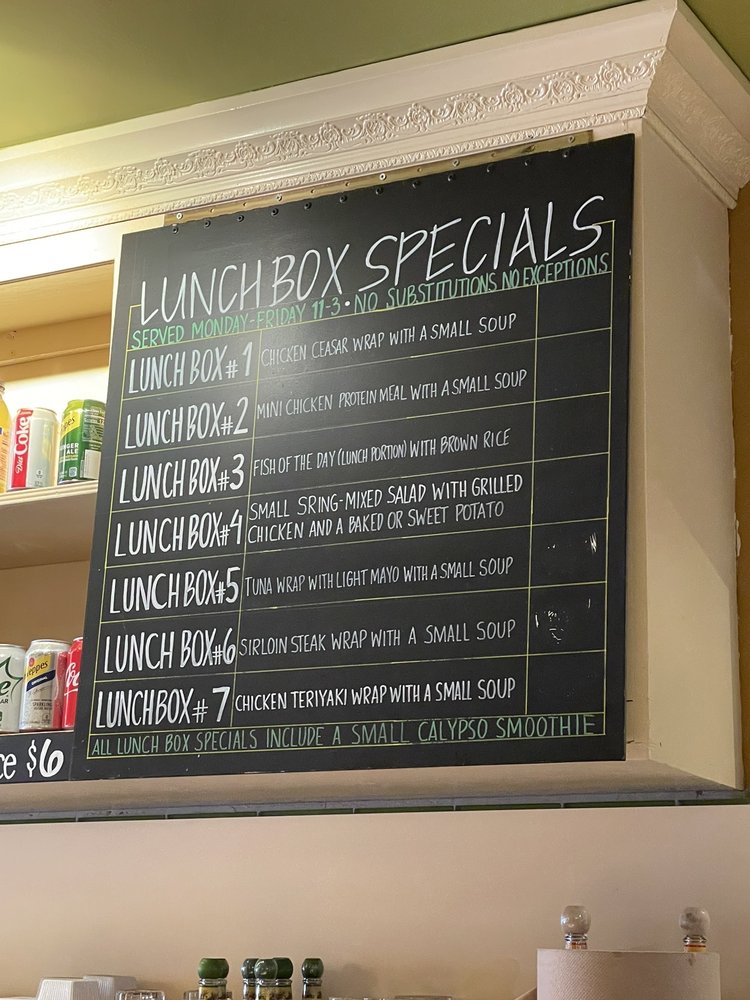 LUNCH BOX SPECIALS
SERVED MONDAY-FRIDAY 11-3 • NO SUBSTITUTIONS NO EXCEPTIONS
LUNCH BOX #1 CHICKEN CEASAR WRAP WITH A SMALL SOUP
LUNCH BOX #2 MINI CHICKEN PROTEIN MEAL WITH A SMALL SOUP
LUNCH BOX #3 FISH OF THE DAY (LUNCH PORTION) WITH BROWN RICE
LUNCH BOX #4 SMALL SRING-MIXED SALAD WITH GRILLED
CHICKEN AND A BAKED OR SWEET POTATO
LUNCH BOX #5 TUNA WRAP WITH LIGHT MAYO WITH A SMALL SOUP
LUNCH BOX #6 SIRLOIN STEAK WRAP WITH A SMALL SOUP
LUNCH BOX #7 CHICKEN TERIYAKI WRAP WITH A SMALL SOUP
ALL LUNCH BOX SPECIALS INCLUDE A SMALL CALYPSO SMOOTHIE
Diet Coke
$6